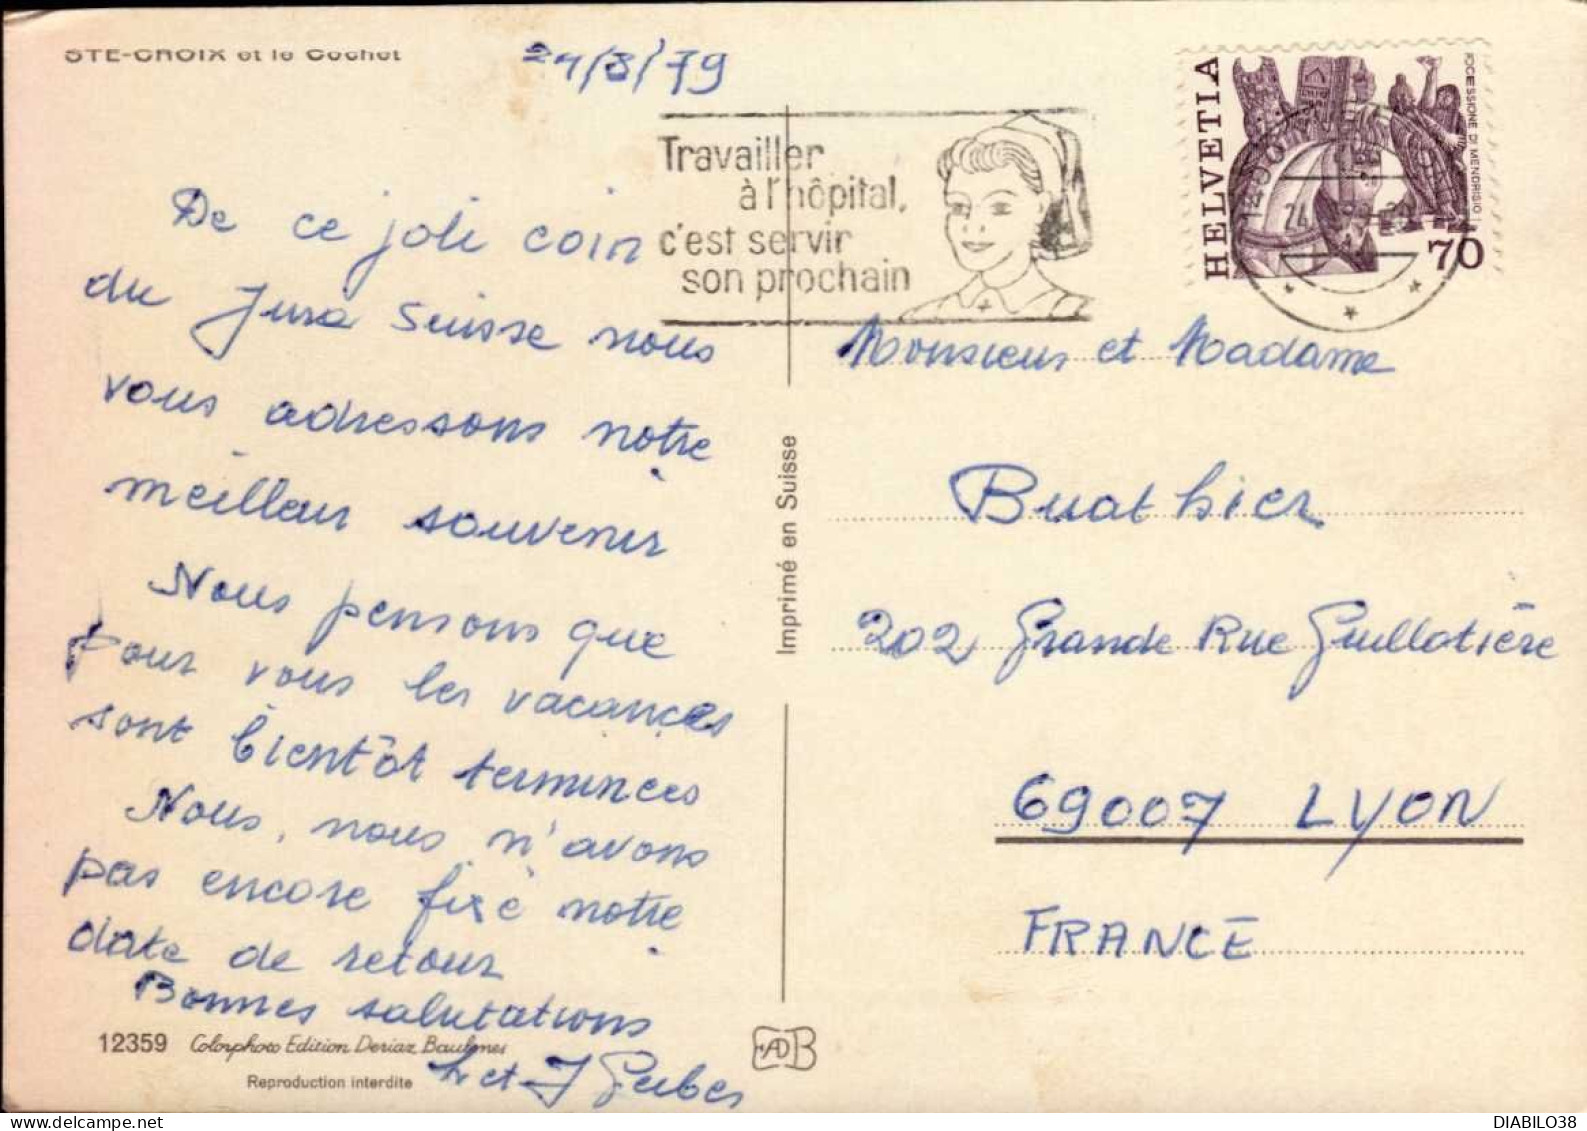 STE-CROIX et le Cochet
24/8/79
Travailler
à l'hôpital,
c'est servir
son prochain
HELVETIA
PROCESSIONE DI MENDRISIO
70
De ce joli coin
du Jura Suisse nous
vous adressons notre
meilleur souvenir.
Nous pensons que
pour vous les vacances
sont bientôt terminées
Nous, nous n'avons
pas encore fixé notre
date de retour.
Bonnes salutations
et J
Monsieur et Madame
Buathier
202 Grande Rue Guillotière
69007 LYON
FRANCE
Imprimé en Suisse
12359 Colorphoto Edition Deriaz Baulmes
Reproduction interdite
DIABILO38